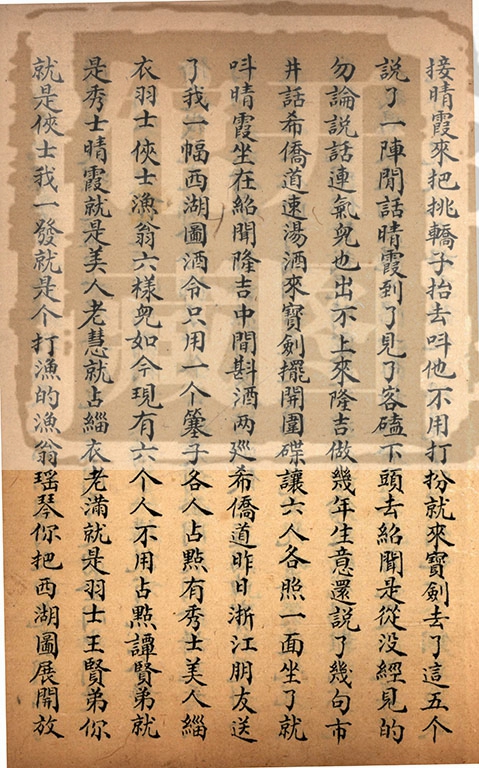 接晴霞來把挑轎子抬去呌他不用打扮就來寳劍去了這五个
說了一陣閒話晴霞到了見了客磕下頭去紹聞是從没經見的
勿論說話連氣兒也出不上來隆吉做幾年生意還說了幾句市
井話希僑道速湯酒來寳劍擺開圍碟讓六人各照一面坐了就
呌晴霞坐在紹聞隆吉中間斟酒两廵希僑道昨日浙江朋友送
了我一幅西湖圖酒令只用一个簺子各人占點有秀士美人緇
衣羽士俠士漁翁六樣兒如今現有六个人不用占點譚賢弟就
是秀士晴霞就是美人老慧就占緇衣老滿就是羽士王賢弟你
就是俠士我一發就是个打漁的漁翁瑶琴你把西湖圖展開放